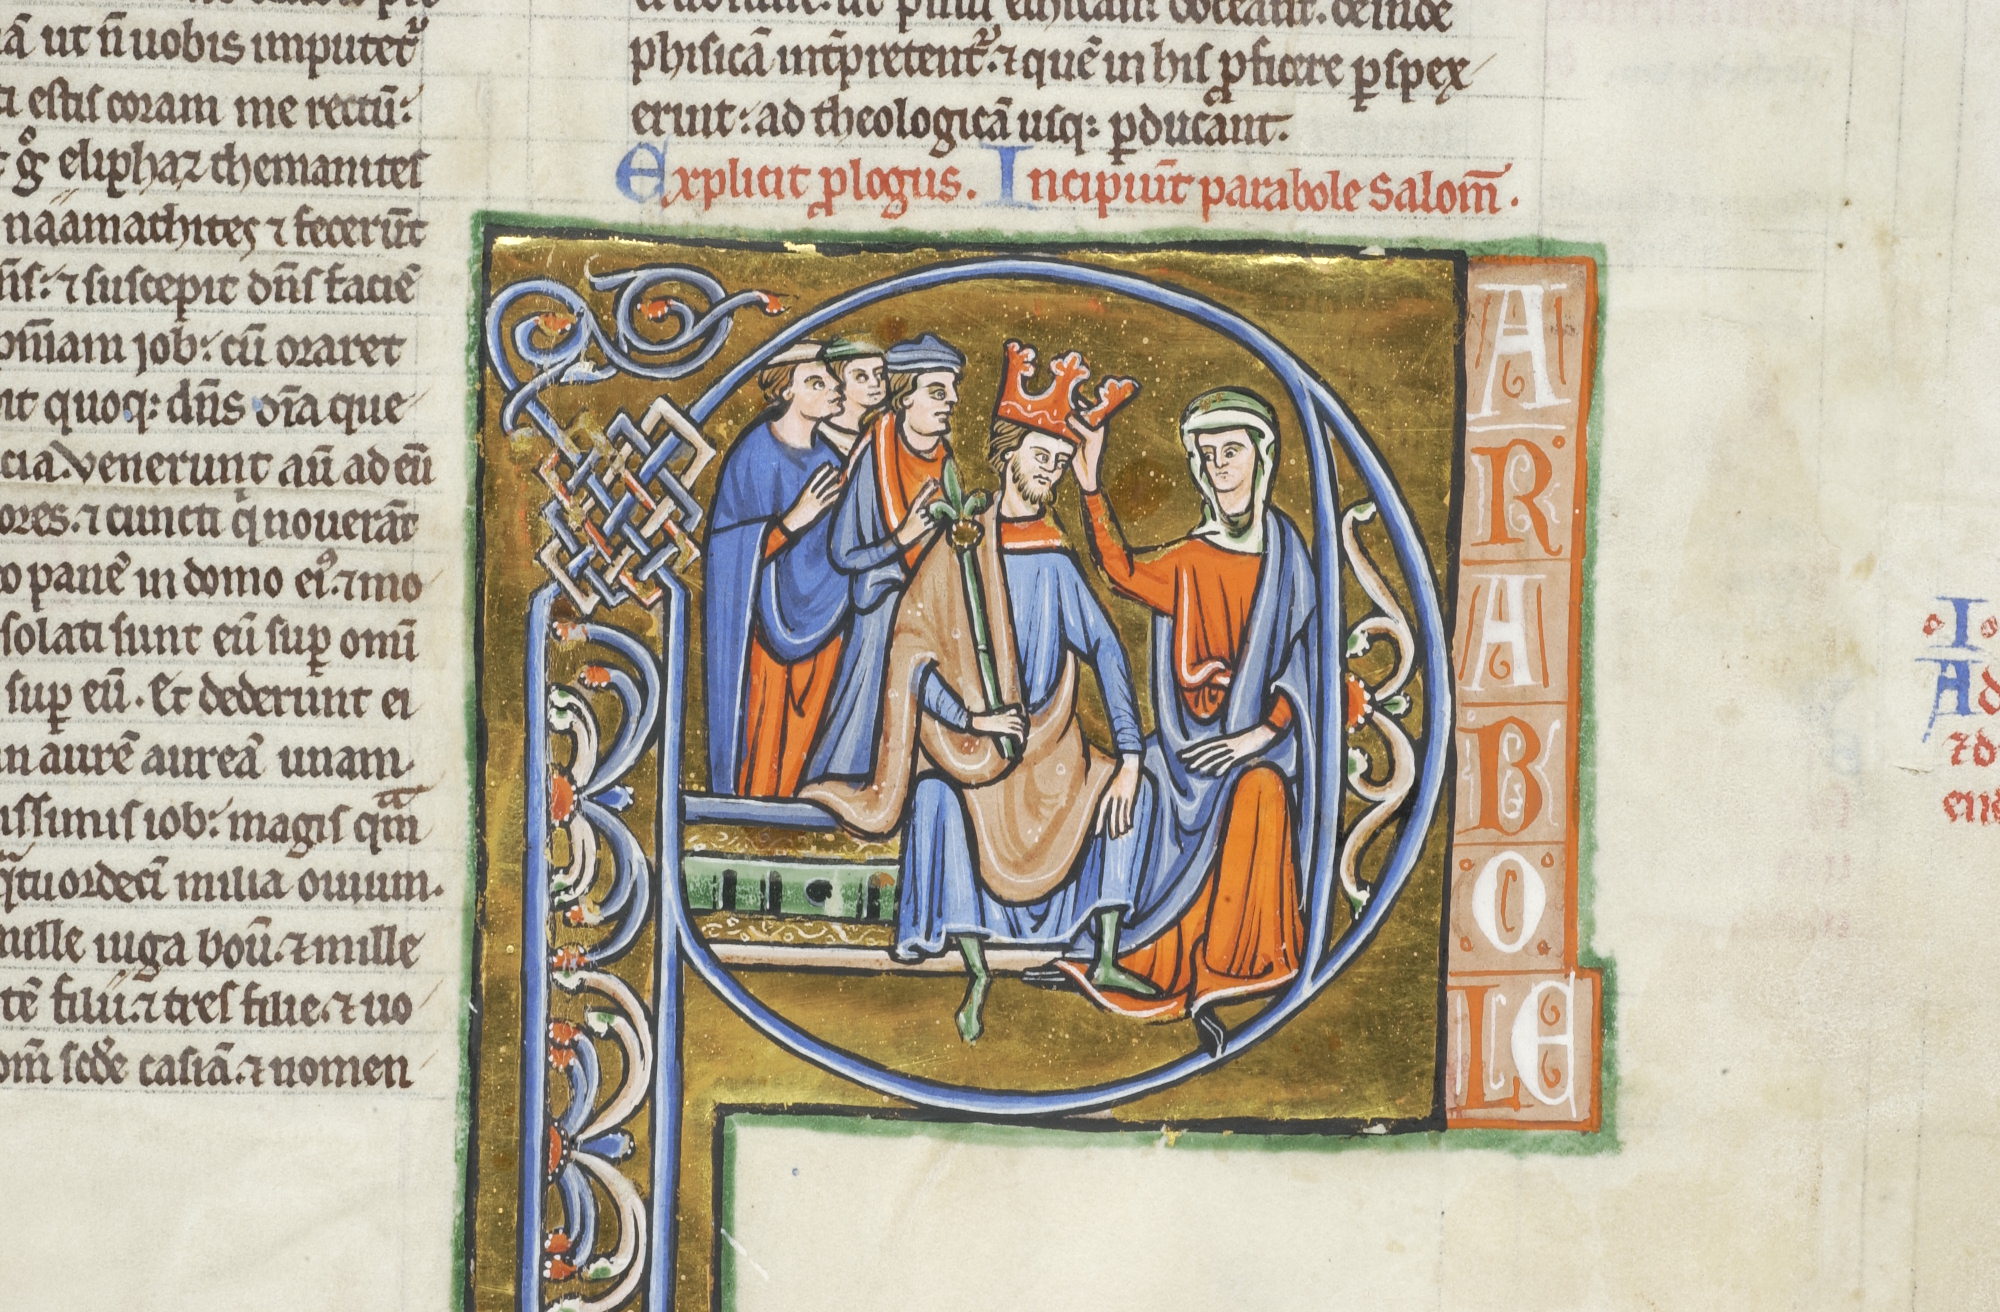 ut n̄ uobis imputet᷑
estis coram me rectū:
g̊ eliphaz themanites
naamathites ⁊ fecer̄t
⁊ suscepit dn̄s faciē
job: cū oraret
quoq: dn̄s oīa que
venerunt aū ad eū
⁊ cuncti q̇ nouerāt
panē in domo eiꝰ. ⁊ mo
sunt eū suꝑ omī
suꝑ eū. Et dederunt ei
aurē aureā unam
iob: magis qm̄
milia ouium.
mille iuga boū. ⁊ mille
filii. ⁊ tres filie. ⁊ uo
casiā. ⁊ nomen
deinde
phisicā int̄pretent᷑. ⁊ quē in his ꝓficere ꝑspex
erint: ad theologicā usq: ꝑducant.
Explicit ꝓlogus. Incipiūt parabole Salom̄.
PARABOLE